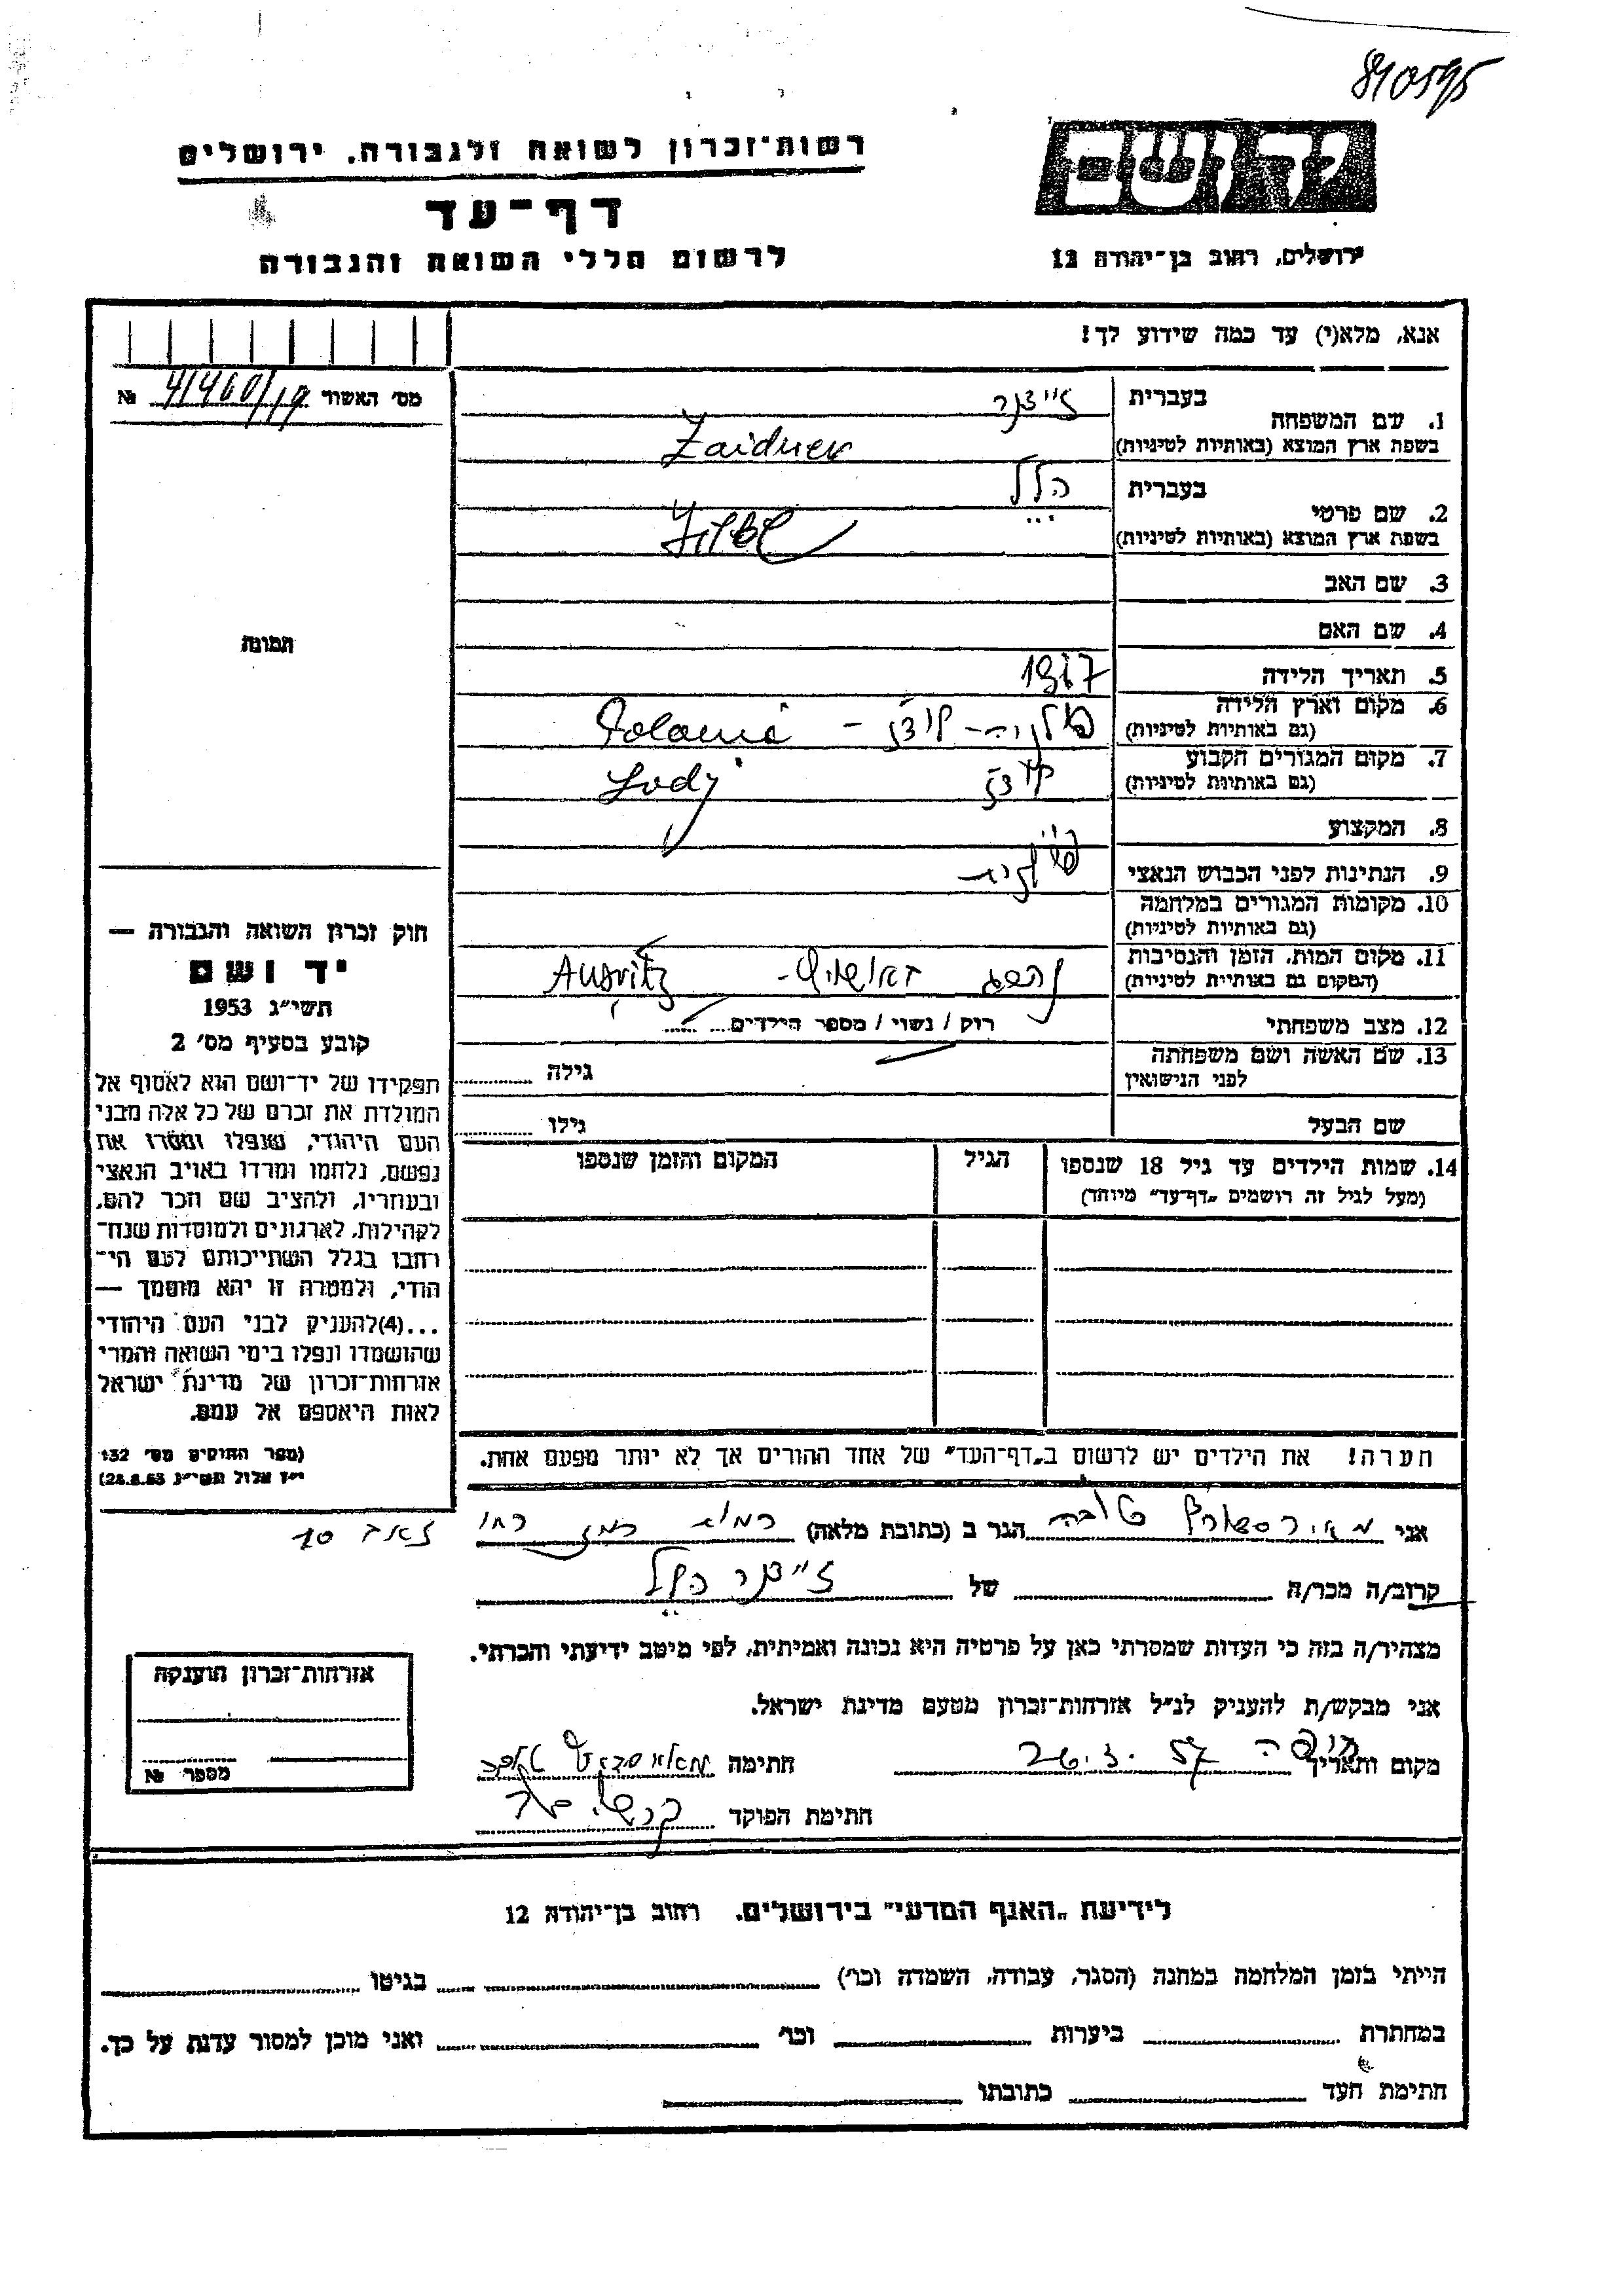 810595
רשות־זכרון לשואה ולגבורה. ירושלים
דף־עד
לרשום חללי השואה והגבורה
יד ושם
ירושלים, רחוב בן־יהודה 12
אנא, מלא(י) עד כמה שידוע לך!
מס׳ האשור 41460/19 №
1. שם המשפחה
בעברית זיידנר
בשפת ארץ המוצא (באותיות לטיניות) Zaidner
2. שם פרטי
בעברית הלל
בשפת ארץ המוצא (באותיות לטיניות)
3. שם האב
4. שם האם
תמונה
5. תאריך הלידה 1917
6. מקום וארץ הלידה
(גם באותיות לטיניות) פולניה - לודז - Polania
7. מקום המגורים הקבוע
(גם באותיות לטיניות) לודז Lodj
8. המקצוע
9. הנתינות לפני הכבוש הנאצי פולנית
10. מקומות המגורים במלחמה
(גם באותיות לטיניות)
11. מקום המות, הזמן והנסיבות
(המקום גם באותיות לטיניות) באושויץ - Ausvitz
12. מצב משפחתי רוק / נשוי / מספר הילדים
13. שם האשה ושם משפחתה
לפני הנישואין
גילה
שם הבעל גילו
14. שמות הילדים עד גיל 18 שנספו
(מעל לגיל זה רושמים „דף־עד״ מיוחד)
הגיל
המקום והזמן שנספו
הערה! את הילדים יש לרשום ב„דף־העד״ של אחד ההורים אך לא יותר מפעם אחת.
חוק זכרון השואה והגבורה —
יד ושם
תשי״ג 1953
קובע בסעיף מס׳ 2
תפקידו של יד־ושם הוא לאסוף אל
המולדת את זכרם של כל אלה מבני
העם היהודי, שנפלו ומסרו את
נפשם, נלחמו ומרדו באויב הנאצי
ובעוזריו, ולהציב שם וזכר להם,
לקהילות, לארגונים ולמוסדות שנח־
רבו בגלל השתייכותם לעם הי־
הודי, ולמטרה זו יהא מוסמך —
...(4)להעניק לבני העם היהודי
שהושמדו ונפלו בימי השואה והמרי
אזרחות־זכרון של מדינת ישראל
לאות היאספם אל עמם.
(ספר החוקים מס׳ 132
י״ז אלול תשי״ג 28.8.53)
אני טובה הגר ב (כתובת מלאה) רמת רמז רחו
זאב 10
קרוב/ה מכר/ה של זיידנר הלל
מצהיר/ה בזה כי העדות שמסרתי כאן על פרטיה היא נכונה ואמיתית, לפי מיטב ידיעתי והכרתי.
אני מבקש/ת להעניק לנ״ל אזרחות־זכרון מטעם מדינת ישראל.
מקום ותאריך חיפה 26.3.57 חתימה
חתימת הפוקד
אזרחות־זכרון הוענקה
מספר №
לידיעת „האגף המדעי״ בירושלים. רחוב בן־יהודה 12
הייתי בזמן המלחמה במחנה (הסגר, עבודה, השמדה וכו׳) בגיטו
במחתרת ביערות וכו׳ ואני מוכן למסור עדות על כך.
חתימת העד כתובתו